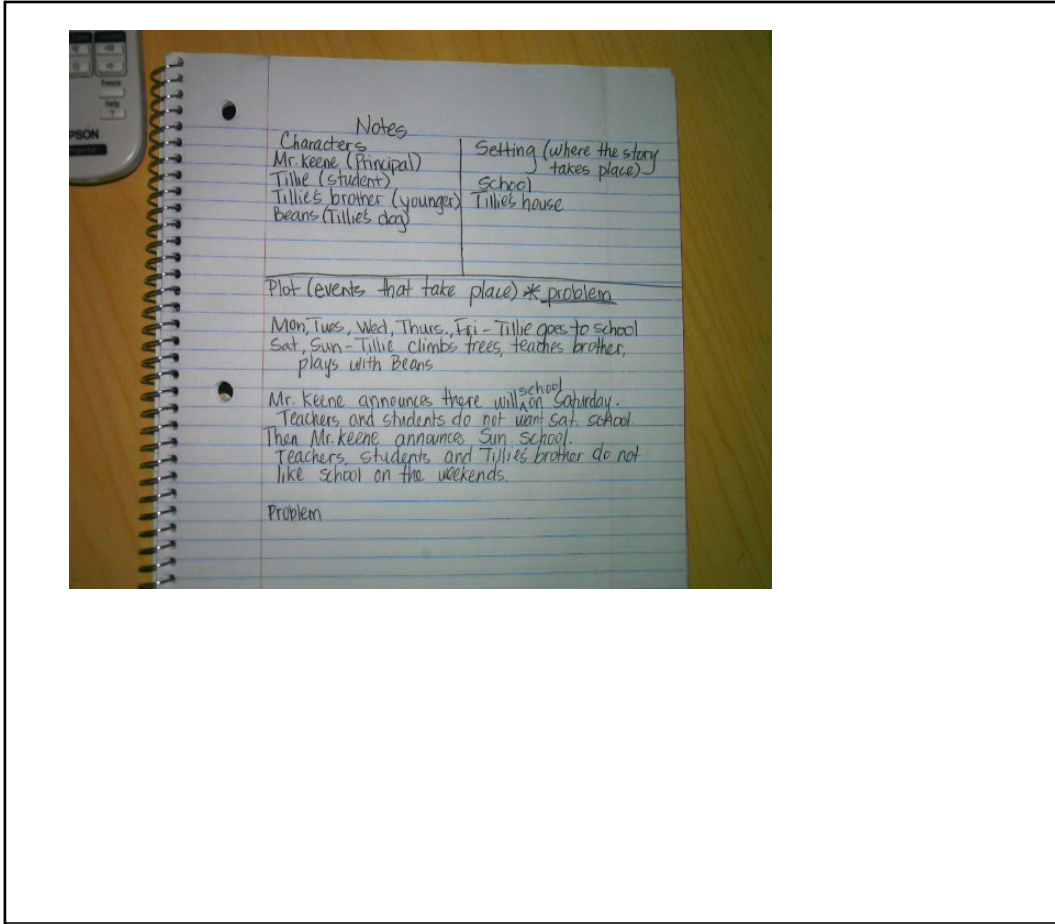 Freeze
Help
?
PSON
Notes
Characters
Mr. Keene (Principal)
Tillie (student)
Tillie's brother (younger)
Beans (Tillie's dog)
Setting (where the story
takes place)
School
Tillie's house
Plot (events that take place) * problem
Mon, Tues, Wed, Thurs., Fri - Tillie goes to school
Sat, Sun - Tillie climbs trees, teaches brother,
plays with Beans
Mr. Keene announces there will school on Saturday.
Teachers and students do not want Sat. school.
Then Mr. Keene announces Sun school.
Teachers, students and Tillie's brother do not
like school on the weekends.
Problem